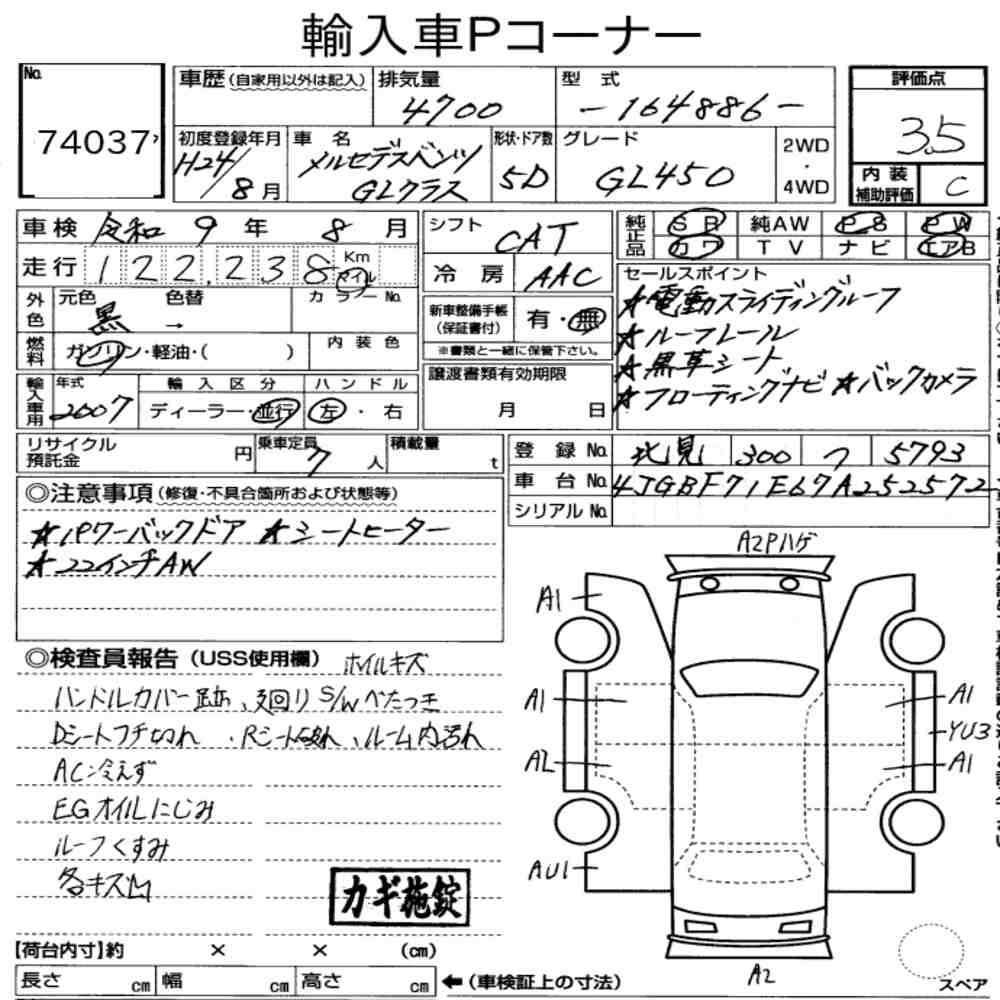 輸入車Pコーナー
No. 74037
車歴(自家用以外は記入) 排気量 4700 型式 -164886- 評価点 3.5
初度登録年月 H24/8月 車名 メルセデスベンツ GLクラス 形状・ドア数 5D グレード GL450 2WD・4WD 内装補助評価 C
車検 令和 9年 8月 シフト CAT 純正品 SR 純AW PS PW
走行 122,238 Km マイル 冷房 AAC カワ TV ナビ エアB
外色 元色 黒 色替 → カラーNo.
新車整備手帳(保証書付) 有・無
※書類と一緒に保管下さい。
セールスポイント
★電動スライディングルーフ
★ルーフレール
★黒革シート
★フローティングナビ ★バックカメラ
燃料 ガソリン・軽油・( ) 内装色
譲渡書類有効期限 月 日
輸入車用 年式 2007 輸入区分 ディーラー・並行 ハンドル 左・右
リサイクル預託金 円 乗車定員 7人 積載量 t
登録No. 北見 300 つ 5793
車台No. 4JGBF71E67A252572
シリアルNo.
◎注意事項(修復・不具合箇所および状態等)
★パワーバックドア ★シートヒーター
★22インチAW
◎検査員報告(USS使用欄) ホイルキズ
ハンドルカバー 廻り S/Wべたつき
Dシートフチ切れ、Rシート破れ、ルーム内汚れ
AC冷えず
EGオイルにじみ
ルーフくすみ
各キズ凹
カギ施錠
A2Pハゲ
A1
A1
A1
YU3
A2
A1
AU1
A2
スペア
【荷台内寸】約 × × (cm)
長さ cm 幅 cm 高さ cm ←(車検証上の寸法)